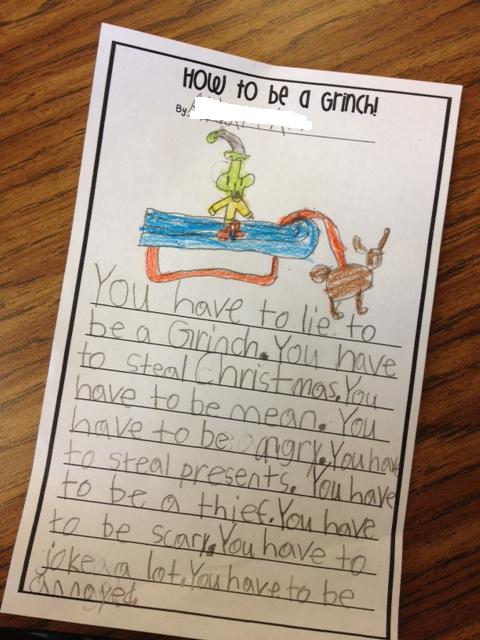 How to be a Grinch!
By:
You have to lie to
be a Grinch. You have
to steal Christmas. You
have to be mean. You
have to be angry. You have
to steal presents. You have
to be a thief. You have
to be scary. You have to
joke a lot. You have to be
annoyed.